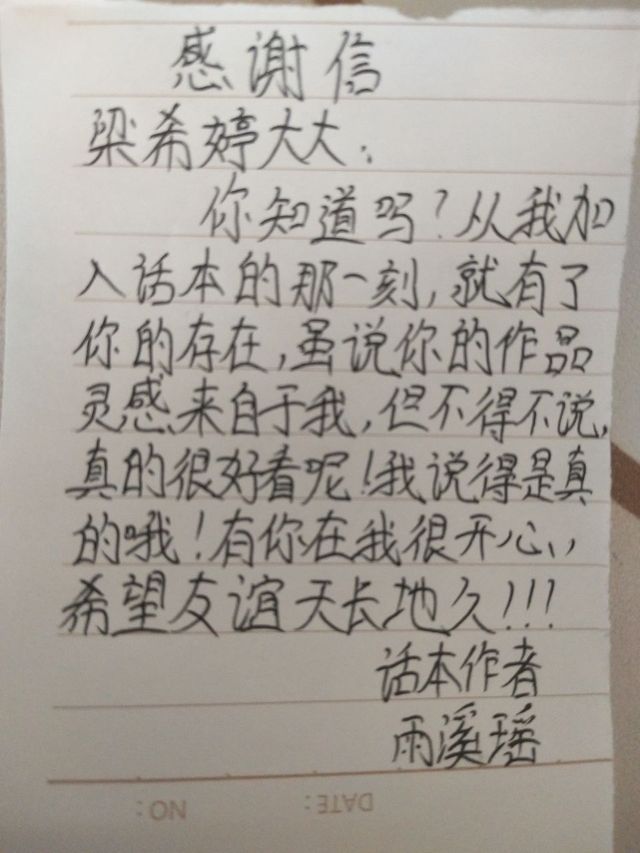 感谢信
梁希婷大大：
你知道吗？从我加
入话本的那一刻，就有了
你的存在，虽说你的作品
灵感来自于我，但不得不说，
真的很好看呢！我说得是真
的哦！有你在我很开心，，
希望友谊天长地久！！！
话本作者
雨溪瑶
DATE:
NO: